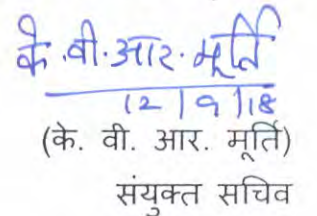 के.वी.आर.मूर्ति
12/9/18
(के. वी. आर. मूर्ति)
संयुक्त सचिव